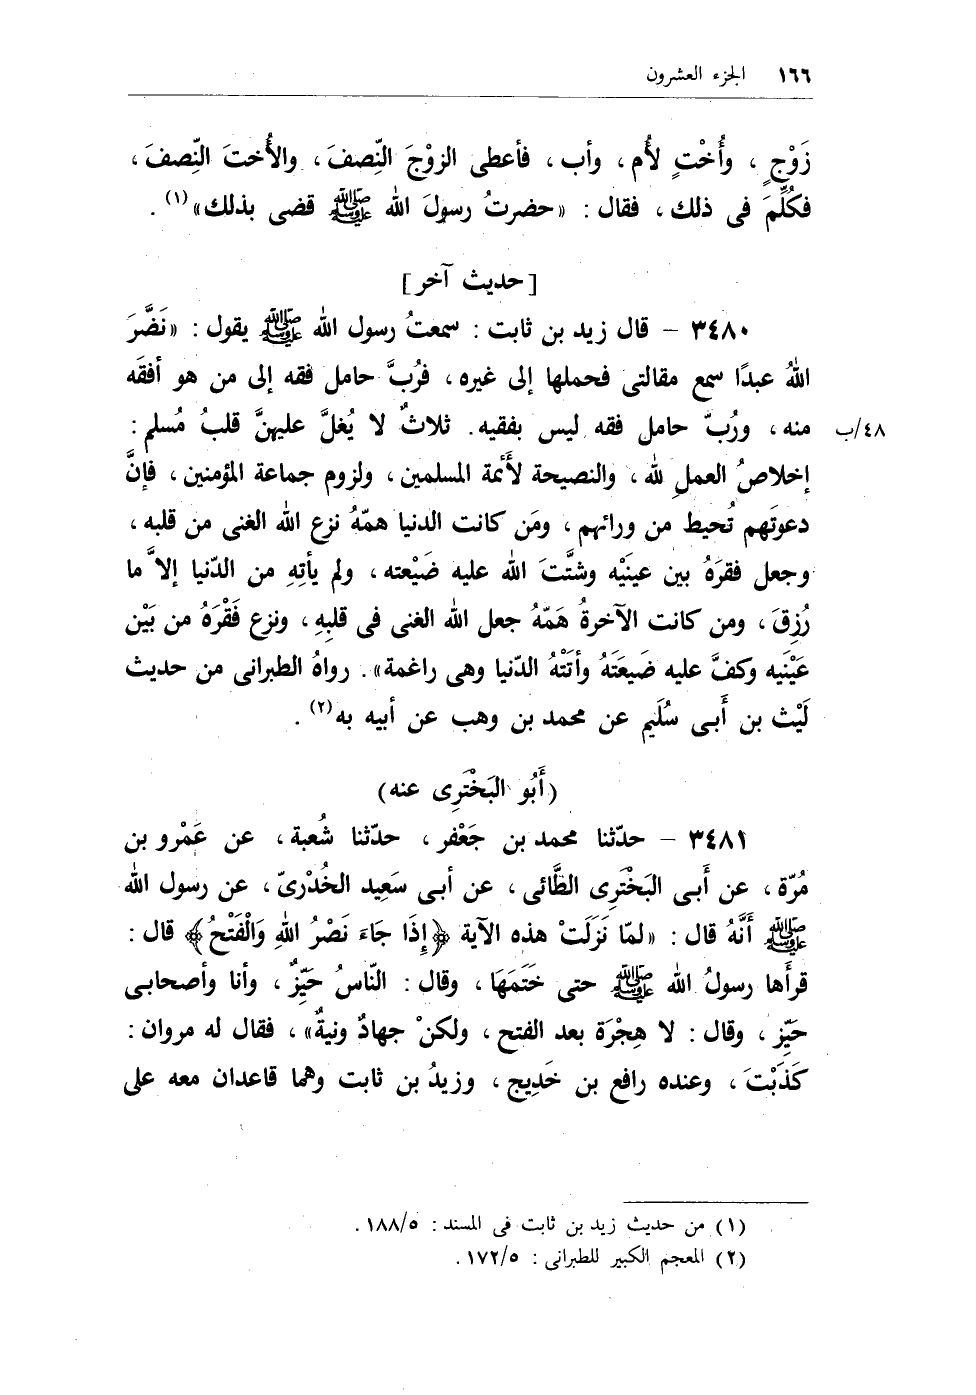 ١٦٦ الجزء العشرون
زَوْجٍ ، وأُخْتٍ لأُم ، وأب ، فأعطى الزوْجَ النِّصفَ ، والأُختَ النِّصفَ ،
فكُلِّمَ فى ذلك ، فقال : «حضرتُ رسولَ الله ﷺ قضى بذلك»(١) .
[حديث آخر]
٣٤٨٠ – قال زيد بن ثابت : سمعتُ رسول الله ﷺ يقول : «نَضَّرَ
اللهُ عبدًا سمع مقالتى فحملها إلى غيره ، فرُبَّ حامل فقه إلى من هو أفقَه
منه ، ورُبّ حامل فقه ليس بفقيه. ثلاثٌ لا يُغلَّ عليهنَّ قلبُ مُسلم : ٤٨/ب
إخلاصُ العملِ لله ، والنصيحة لأَئمة المسلمين ، ولزوم جماعة المؤمنين ، فإنَّ
دعوتَهم تُحيط من ورائهم ، ومَن كانت الدنيا همّهُ نزع الله الغنى من قلبه ،
وجعل فقرَهُ بين عينَيْه وشتَّتَ الله عليه ضَيْعته ، ولم يأتِهِ من الدّنيا إلاَّ ما
رُزِقَ ، ومن كانت الآخرةُ هَمّهُ جعل الله الغنى فى قلبِهِ ، ونزع فَقْرَهُ من بَيْن
عَيْنَيه وكفَّ عليه ضَيعَتَهُ وأتَتْهُ الدّنيا وهى راغمة» . رواهُ الطبرانى من حديث
لَيْث بن أَبى سُلَيم عن محمد بن وهب عن أبيه به(٢) .
(أَبُو البَخْتَرِى عنه)
٣٤٨١ – حدّثنا محمد بن جَعْفر ، حدّثنا شُعبة ، عن عَمْرو بن
مُرّة ، عن أَبى البَخْتَرِى الطَّائى ، عن أبى سَعِيد الخُدْرىّ ، عن رسول الله
ﷺ أَنَّهُ قال : «لمّا نَزَلَتْ هذه الآية ﴿إِذَا جَاءَ نَصْرُ اللهِ وَالْفَتْحُ﴾ قال :
قرأَها رسولُ الله ﷺ حتى خَتَمَهَا ، وقال : النّاسُ حَيّزٌ ، وأنا وأصحابى
حَيّز ، وقال : لا هِجْرَة بعد الفتح ، ولكنْ جهادٌ ونيةٌ» ، فقال له مروان :
كَذَبْتَ ، وعنده رافع بن خَدِيج ، وزيدُ بن ثابت وهما قاعدان معه على
(١) من حديث زيد بن ثابت فى المسند : ١٨٨/٥ .
(٢) المعجم الكبير للطبرانى : ١٧٢/٥ .